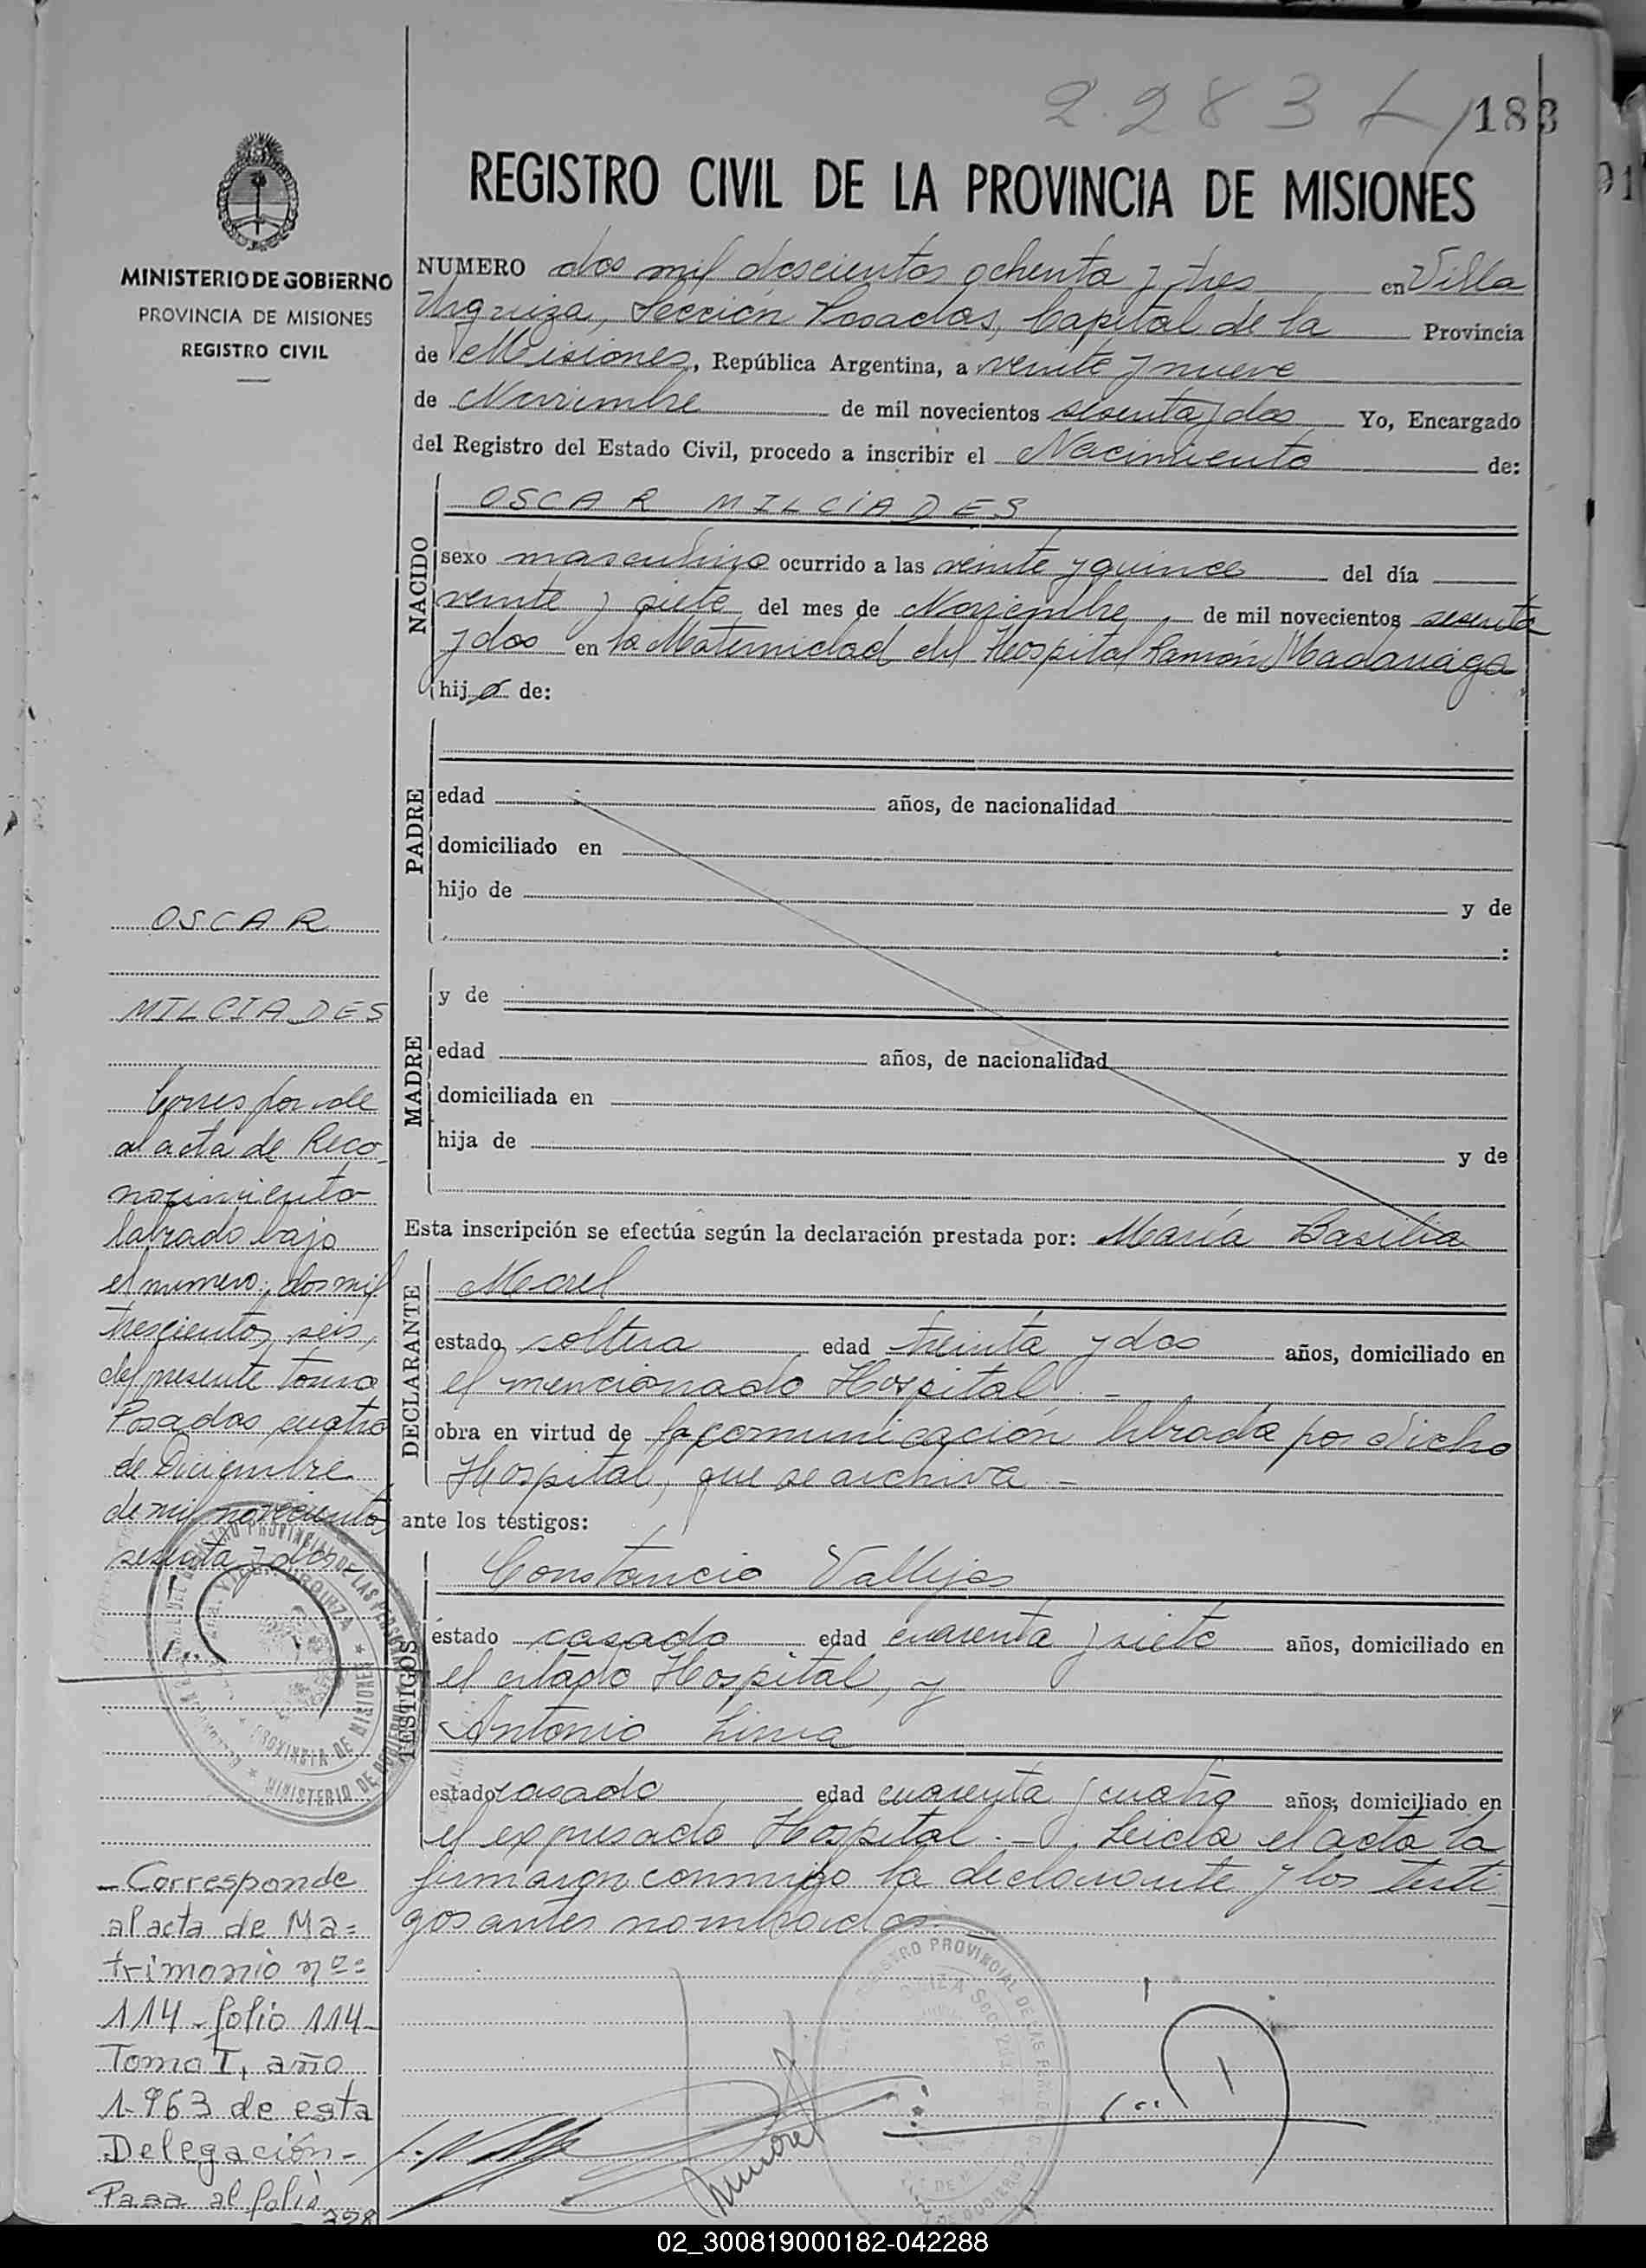 2.283 L/ 183
REGISTRO CIVIL DE LA PROVINCIA DE MISIONES
MINISTERIO DE GOBIERNO
PROVINCIA DE MISIONES
REGISTRO CIVIL
NUMERO dos mil doscientos ochenta y tres en Villa
Urquiza, Sección Posadas, Capital de la Provincia
de Misiones, República Argentina, a veinte y nueve
de Noviembre de mil novecientos sesenta y dos Yo, Encargado
del Registro del Estado Civil, procedo a inscribir el Nacimiento de:
NACIDO
OSCAR MILCIADES
sexo masculino ocurrido a las veinte y quince del día
veinte y siete del mes de Noviembre de mil novecientos sesenta
y dos en la Maternidad del Hospital Ramón Madariaga
hijo de:
PADRE
edad años, de nacionalidad
domiciliado en
hijo de y de
:
MADRE
y de
edad años, de nacionalidad
domiciliada en
hija de y de
Esta inscripción se efectúa según la declaración prestada por: María Basilia
DECLARANTE
Morel
estado soltera edad treinta y dos años, domiciliado en
el mencionado Hospital. -
obra en virtud de la comunicación librada por dicho
Hospital, que se archiva -
ante los testigos:
TESTIGOS
Constancio Vallejos
estado casado edad cuarenta y siete años, domiciliado en
el citado Hospital, y
Antonio Lima
estado casado edad cuarenta y cuatro años, domiciliado en
el expresado Hospital. - Leida el acta la
firmaron conmigo la declarante y los testi-
gos antes nombrados. -
OSCAR
MILCIADES
Corresponde
al acta de Reco-
nocimiento
labrado bajo
el numero, dos mil
trescientos seis,
del presente tomo
Posadas, cuatro
de Diciembre
de mil novecientos
sesenta y dos
- Corresponde
al acta de Ma=
trimonio nº=
114 - folio 114-
Tomo I, año
1.963 de esta
Delegación-
Pasa al folio
398
MINISTERIO DE GOBIERNO
PROVINCIA DE MISIONES
REGISTRO PROVINCIAL DE LAS PERSONAS
Morel
02_300819000182-042288